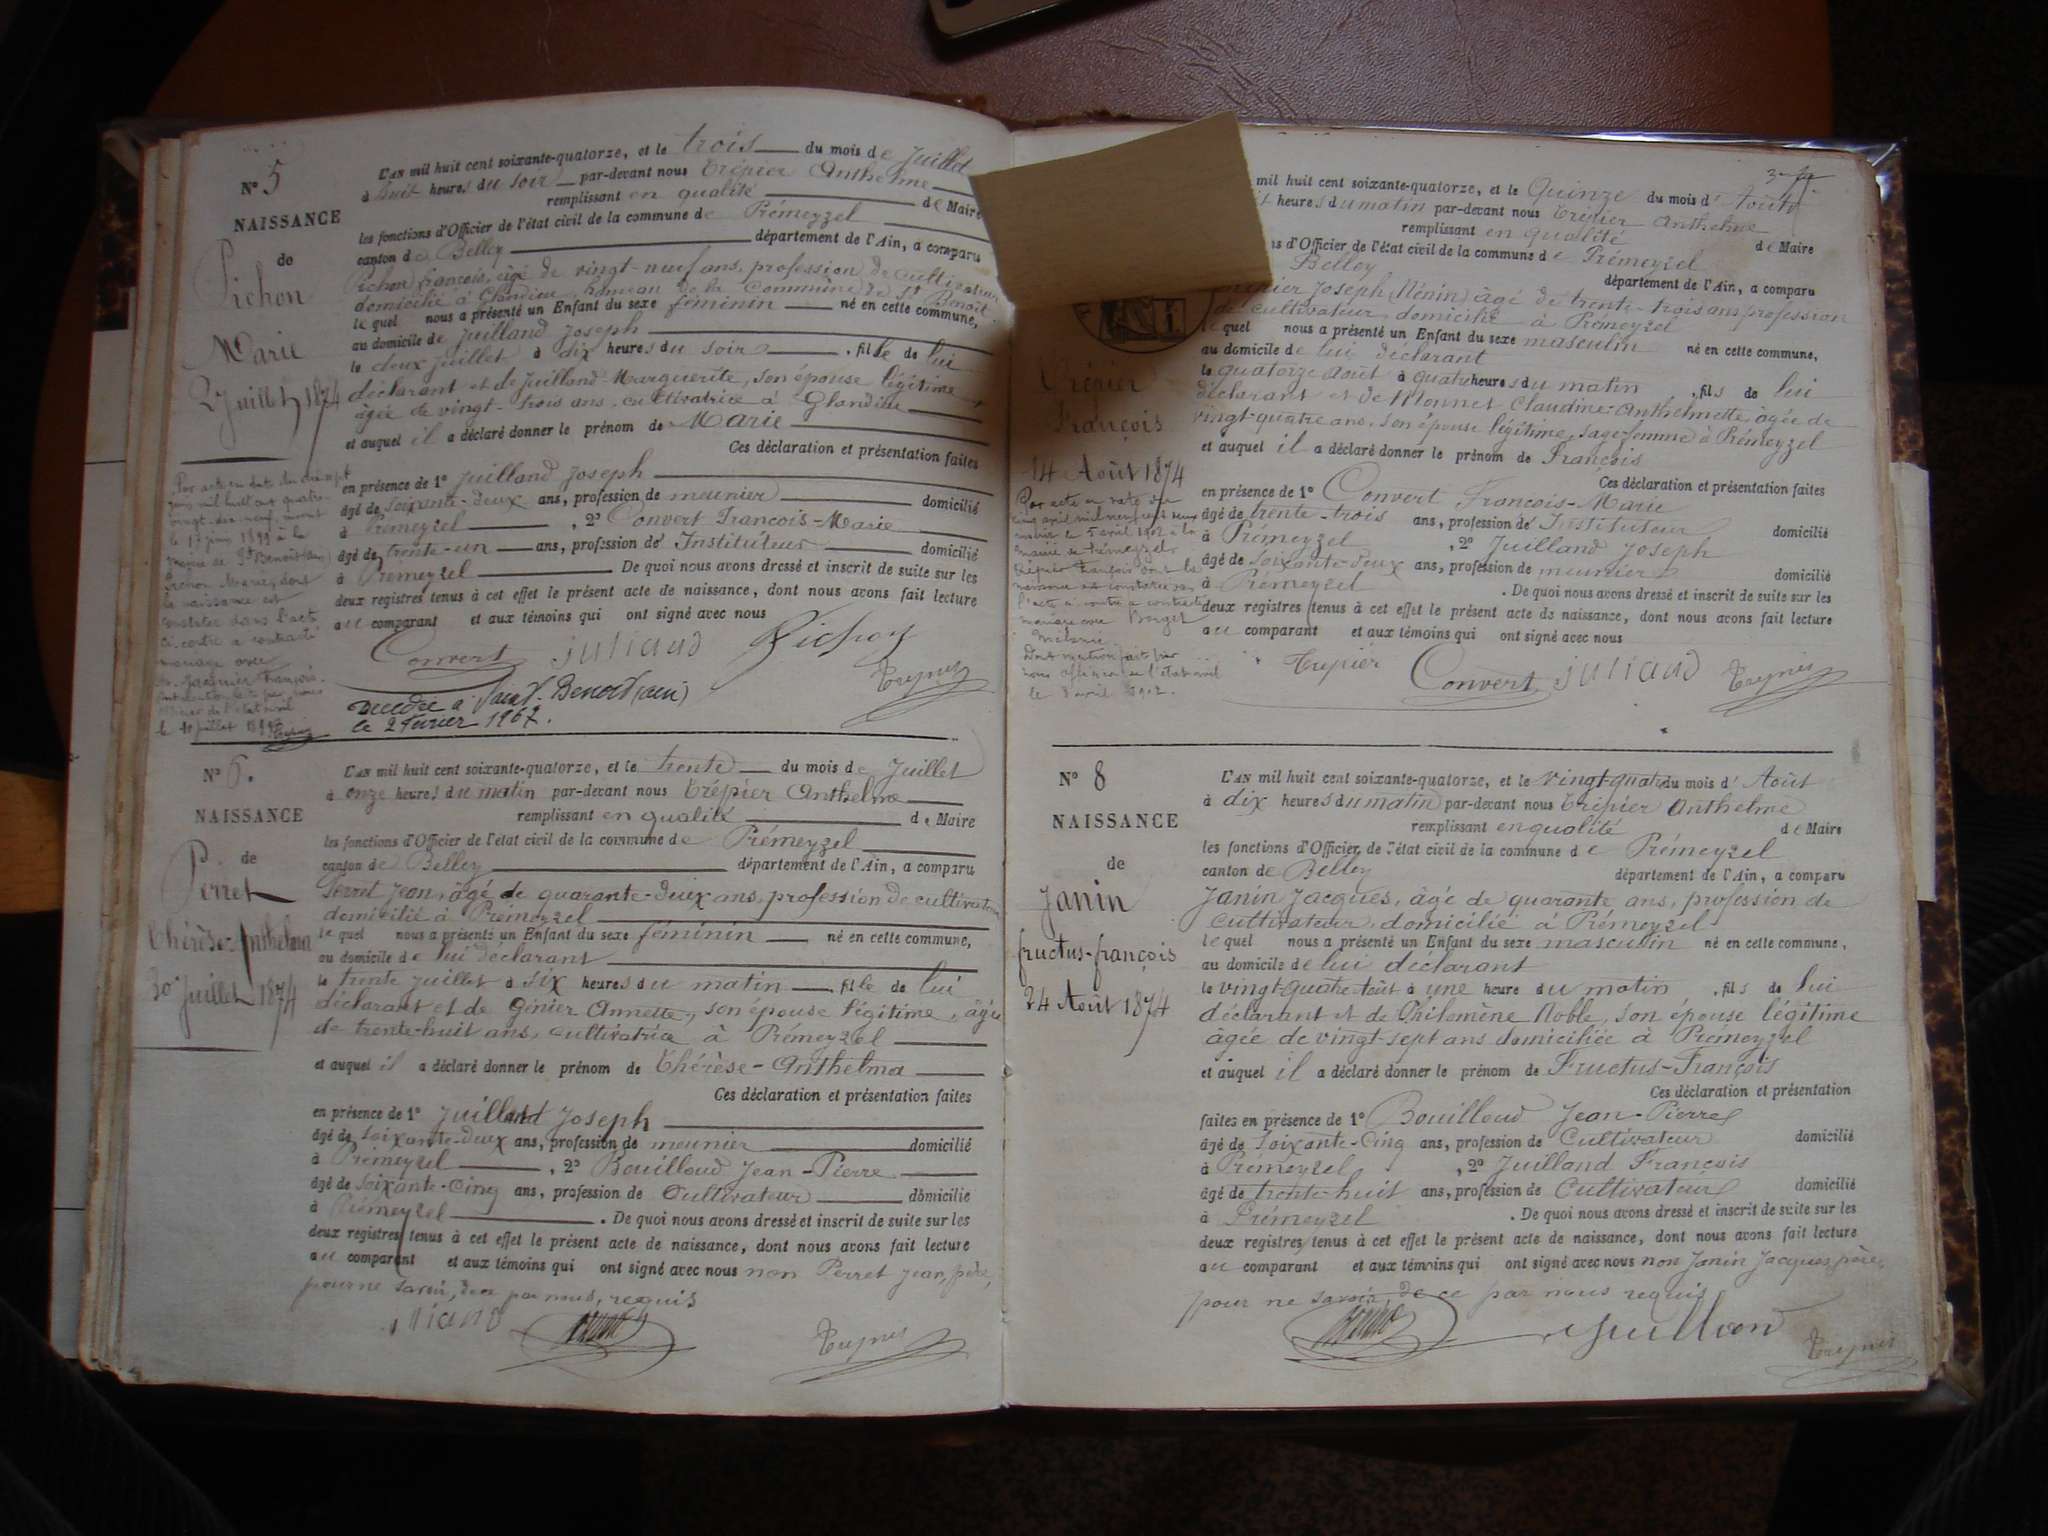 N° 5
NAISSANCE
de
Pichon
Marie
2 Juillet 1874
L'AN mil huit cent soixante-quatorze, et le trois du mois de Juillet
à huit heures du soir par-devant nous Trépier Anthelme
remplissant en qualité de Maire
les fonctions d'Officier de l'état civil de la commune de Prémeyzel
canton de Belley département de l'Ain, a comparu
Pichon françois, âgé de vingt-neuf ans, profession de cultivateur
domicilié à Glandieu, hameau de la Commune de St Benoit
le quel nous a présenté un Enfant du sexe féminin né en cette commune,
au domicile de Juilland Joseph
le deux juillet à dix heures du soir, fille de lui
déclarant et de Juilland Marguerite, son épouse légitime,
âgée de vingt-trois ans, cultivatrice à Glandieu
et auquel il a déclaré donner le prénom de Marie
Ces déclaration et présentation faites
en présence de 1° Juilland Joseph
âgé de soixante-deux ans, profession de meunier domicilié
à Prémeyzel, 2° Convert François-Marie
âgé de trente-un ans, profession de Instituteur domicilié
à Prémeyzel De quoi nous avons dressé et inscrit de suite sur les
deux registres tenus à cet effet le présent acte de naissance, dont nous avons fait lecture
au comparant et aux témoins qui ont signé avec nous
Convert juliand Pichon
Trepier
Décédée à Saint-Benoit (ain)
le 2 Février 1967.
Par acte en date du
mil huit cent quatre-
vingt-dix-neuf, inscrit
le 17 juin 1899 à la
mairie de St Benoit (Ain)
Pichon Marie, dont
la naissance est
constatée dans l'acte
ci-contre a contracté
mariage avec
Jacquier François.
officier de l'état civil
le 10 juillet 1899
N° 6.
NAISSANCE
de
Perret
Thérèse-Anthelma
30 Juillet 1874
L'AN mil huit cent soixante-quatorze, et le trente du mois de Juillet
à onze heures du matin par-devant nous Trépier Anthelme
remplissant en qualité de Maire
les fonctions d'Officier de l'état civil de la commune de Prémeyzel
canton de Belley département de l'Ain, a comparu
Perret Jean, âgé de quarante-deux ans, profession de cultivateur
domicilié à Prémeyzel
le quel nous a présenté un Enfant du sexe féminin né en cette commune,
au domicile de lui déclarant
le trente juillet à six heures du matin, fille de lui
déclarant et de Génier Annette, son épouse légitime, âgée
de trente-huit ans, cultivatrice à Prémeyzel
et auquel il a déclaré donner le prénom de Thérèse-Anthelma
Ces déclaration et présentation faites
en présence de 1° Juilland Joseph
âgé de soixante-deux ans, profession de meunier domicilié
à Prémeyzel, 2° Bouilloud Jean-Pierre
âgé de soixante-cinq ans, profession de Cultivateur domicilié
à Prémeyzel. De quoi nous avons dressé et inscrit de suite sur les
deux registres tenus à cet effet le présent acte de naissance, dont nous avons fait lecture
au comparant et aux témoins qui ont signé avec nous non Perret Jean, père,
pour ne savoir, de ce par nous, requis
Trepier
3
mil huit cent soixante-quatorze, et le Quinze du mois d'Août
heures du matin par-devant nous Trépier Anthelme
remplissant en qualité de Maire
d'Officier de l'état civil de la commune de Prémeyzel
Belley département de l'Ain, a comparu
Trépier Joseph (Nénin) âgé de trente-trois ans, profession
de cultivateur, domicilié à Prémeyzel
le quel nous a présenté un Enfant du sexe masculin né en cette commune,
au domicile de lui déclarant
le quatorze août à quatre heures du matin, fils de lui
déclarant et de Monnet Claudine-Anthelmette âgée de
vingt-quatre ans, son épouse légitime, sage-femme à Prémeyzel
et auquel il a déclaré donner le prénom de François
Ces déclaration et présentation faites
en présence de 1° Convert François-Marie
âgé de trente-trois ans, profession de Instituteur domicilié
à Prémeyzel, 2° Juilland Joseph
âgé de soixante-deux ans, profession de meunier domicilié
à Prémeyzel. De quoi nous avons dressé et inscrit de suite sur les
deux registres tenus à cet effet le présent acte de naissance, dont nous avons fait lecture
au comparant et aux témoins qui ont signé avec nous
Trepier Convert juliand Trepier
Trépier
François
14 Août 1874
Par acte en date du
cinq avril mil neuf cent deux
inscrit le 5 avril 1902 à la
mairie de Prémeyzel,
Trépier François dont la
naissance est constatée dans
l'acte ci-contre a contracté
mariage avec Borget
Mélanie
Dont mention faite par
nous officier de l'état civil
le 8 avril 1902.
N° 8
NAISSANCE
de
Janin
fructus-françois
24 Août 1874
L'AN mil huit cent soixante-quatorze, et le vingt-quatre du mois d'Août
à dix heures du matin par-devant nous Trépier Anthelme
remplissant en qualité de Maire
les fonctions d'Officier de l'état civil de la commune de Prémeyzel
canton de Belley département de l'Ain, a comparu
Janin Jacques, âgé de quarante ans, profession de
cultivateur, domicilié à Prémeyzel
le quel nous a présenté un Enfant du sexe masculin né en cette commune,
au domicile de lui déclarant
le vingt-quatre août à une heure du matin, fils de lui
déclarant et de Philomène Noble, son épouse légitime
âgée de vingt-sept ans domiciliée à Prémeyzel
et auquel il a déclaré donner le prénom de Fructus-François
Ces déclaration et présentation
faites en présence de 1° Bouilloud Jean-Pierre
âgé de soixante-cinq ans, profession de Cultivateur domicilié
à Prémeyzel, 2° Juilland François
âgé de trente-huit ans, profession de Cultivateur domicilié
à Prémeyzel. De quoi nous avons dressé et inscrit de suite sur les
deux registres tenus à cet effet le présent acte de naissance, dont nous avons fait lecture
au comparant et aux témoins qui ont signé avec nous non Janin Jacques père,
pour ne savoir, de ce par nous requis
Trepier